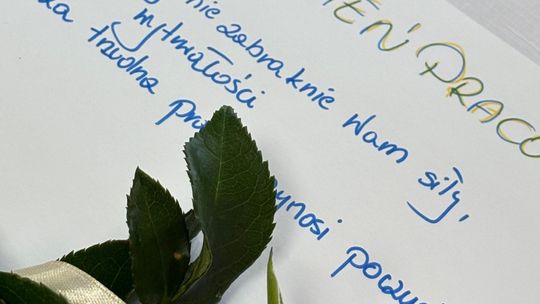 IEŃ PRACO
nie zabraknie Wam siły,
wytrwałości
trudna pra
ynosi poczu